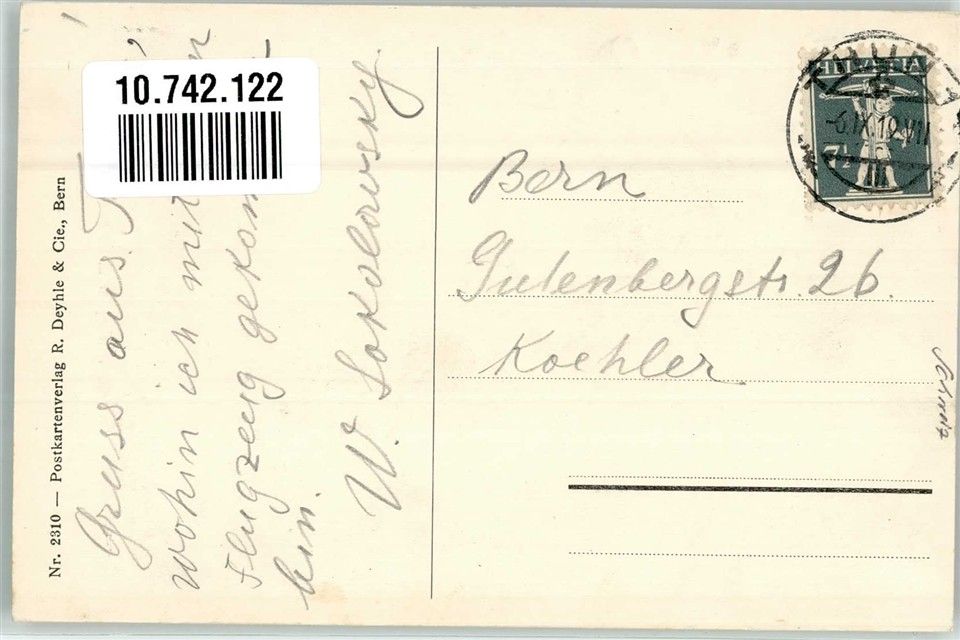 10.742.122
Nr. 2310 — Postkartenverlag R. Deyhle & Cie., Bern
Gruss aus T
wohin ich mit
Flugzeug gekom
bin
W. Sokolowsky
HELVETIA
7½
THUN
-6.IX.19
Bern
Gutenbergstr. 26.
Koehler
Schweiz